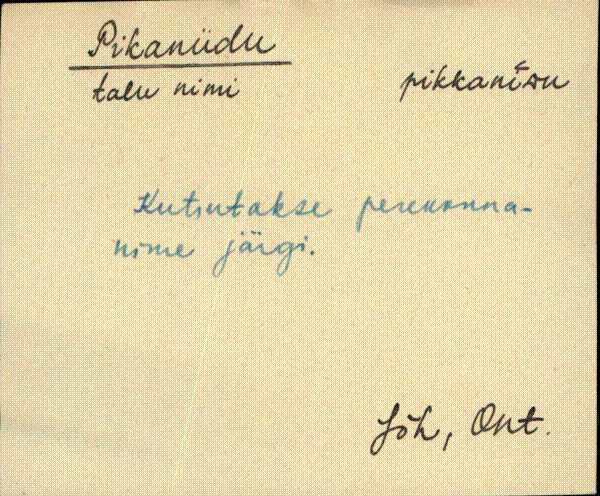 Pikaniidu
talu nimi
pikkanīsu
Kutsutakse perekonna-
nime järgi.
Jõh, Ont.